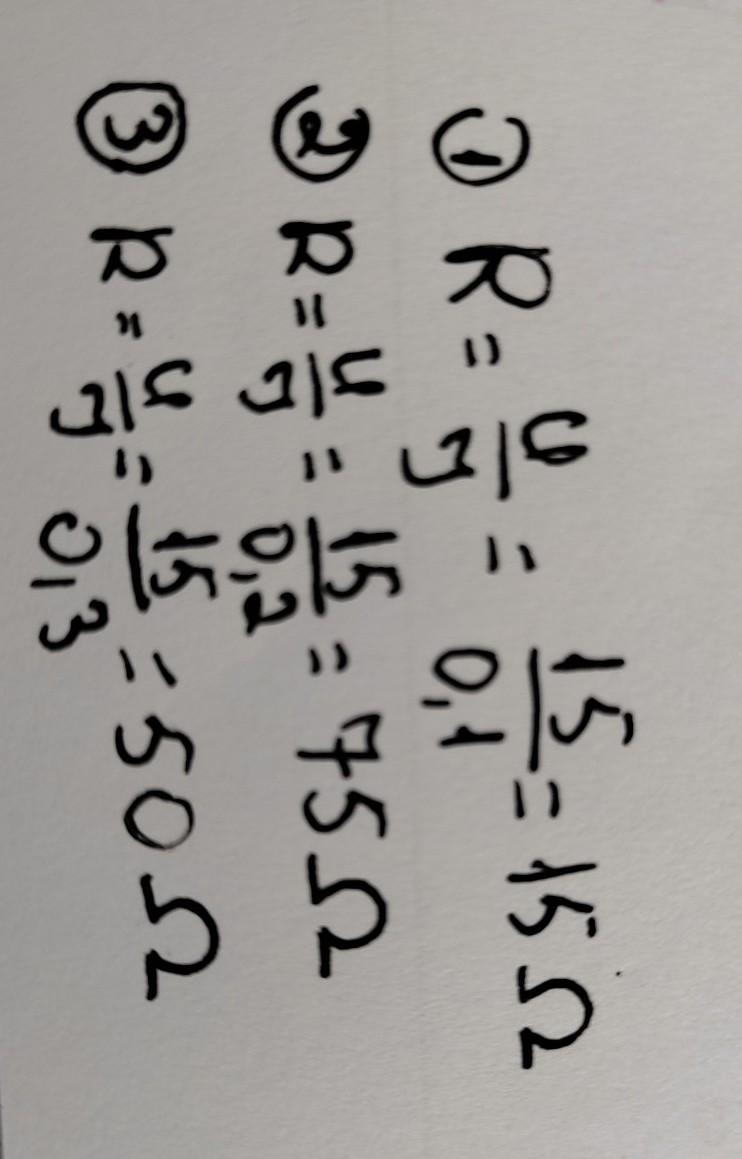 ① R = U/J = 15/0,1 = 15 Ω
② R = U/J = 15/0,2 = 75 Ω
③ R = U/J = 15/0,3 = 50 Ω